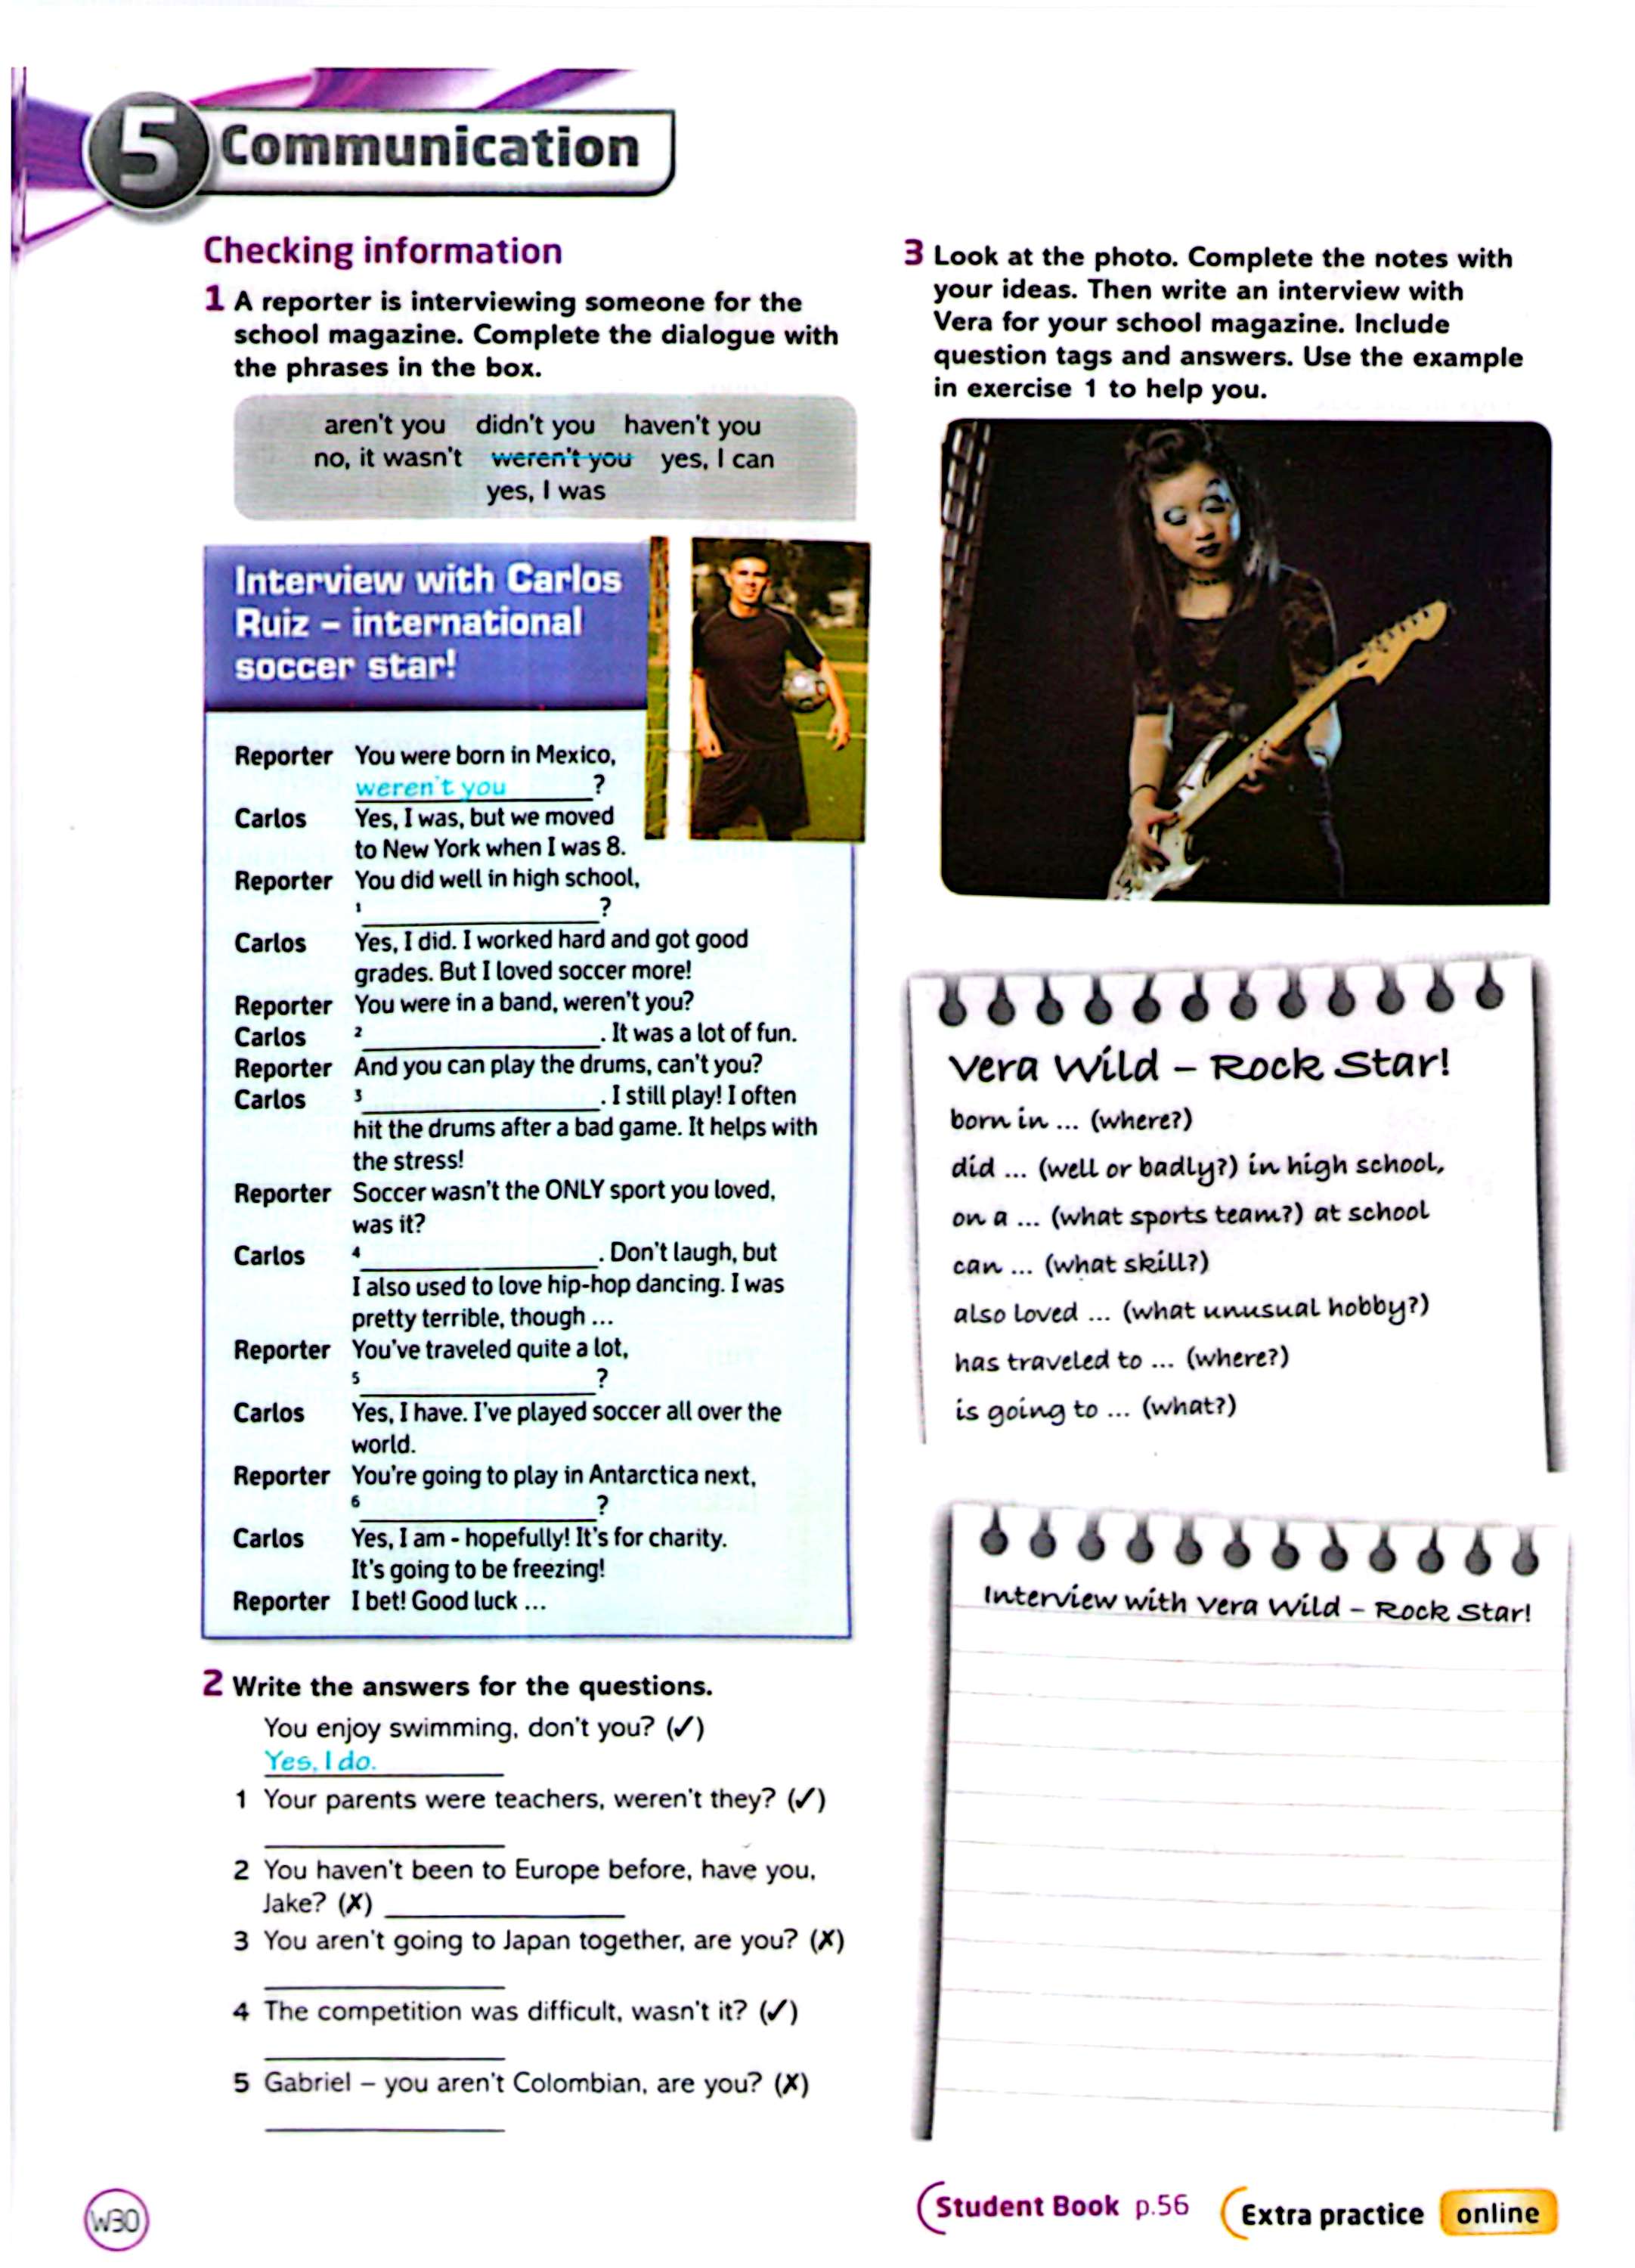 5 Communication
Checking information
1 A reporter is interviewing someone for the
school magazine. Complete the dialogue with
the phrases in the box.
aren't you didn't you haven't you
no, it wasn't weren't you yes, I can
yes, I was
Interview with Carlos
Ruiz – international
soccer star!
Reporter You were born in Mexico,
weren't you ?
Carlos Yes, I was, but we moved
to New York when I was 8.
Reporter You did well in high school,
1 ____________ ?
Carlos Yes, I did. I worked hard and got good
grades. But I loved soccer more!
Reporter You were in a band, weren't you?
Carlos 2 ____________ . It was a lot of fun.
Reporter And you can play the drums, can't you?
Carlos 3 ____________ . I still play! I often
hit the drums after a bad game. It helps with
the stress!
Reporter Soccer wasn't the ONLY sport you loved,
was it?
Carlos 4 ____________ . Don't laugh, but
I also used to love hip-hop dancing. I was
pretty terrible, though ...
Reporter You've traveled quite a lot,
5 ____________ ?
Carlos Yes, I have. I've played soccer all over the
world.
Reporter You're going to play in Antarctica next,
6 ____________ ?
Carlos Yes, I am - hopefully! It's for charity.
It's going to be freezing!
Reporter I bet! Good luck ...
2 Write the answers for the questions.
You enjoy swimming, don't you? (✓)
Yes, I do.
1 Your parents were teachers, weren't they? (✓)
____________
2 You haven't been to Europe before, have you,
Jake? (✗) ____________
3 You aren't going to Japan together, are you? (✗)
____________
4 The competition was difficult, wasn't it? (✓)
____________
5 Gabriel – you aren't Colombian, are you? (✗)
____________
3 Look at the photo. Complete the notes with
your ideas. Then write an interview with
Vera for your school magazine. Include
question tags and answers. Use the example
in exercise 1 to help you.
Vera Wild – Rock Star!
born in ... (where?)
did ... (well or badly?) in high school,
on a ... (what sports team?) at school
can ... (what skill?)
also loved ... (what unusual hobby?)
has traveled to ... (where?)
is going to ... (what?)
Interview with Vera Wild – Rock Star!
W30
Student Book p.56 Extra practice online